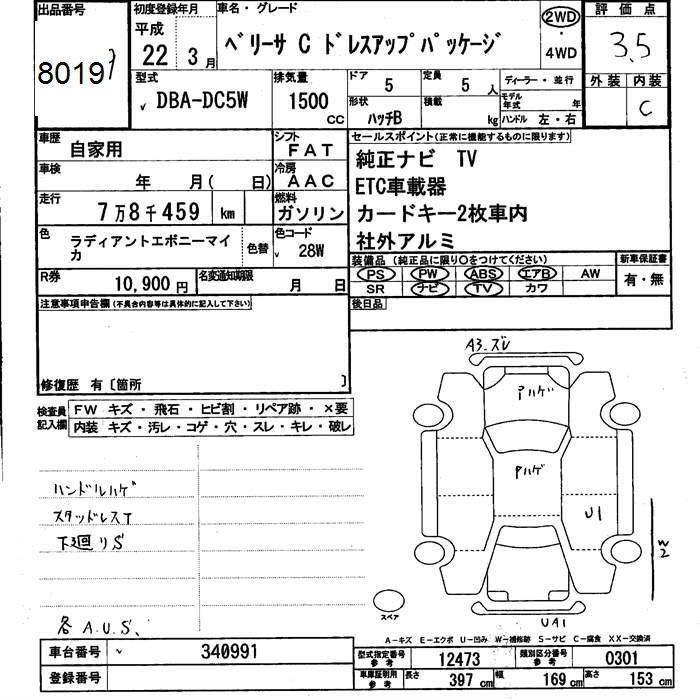 出品番号
8019
初度登録年月
平成
22 3月
車名・グレード
ベリーサ C ドレスアップパッケージ
2WD
・
4WD
評価点
3.5
外装 内装
C
型式
DBA-DC5W
排気量
1500
CC
ドア
5
定員
5 人
形状
ハッチB
積載
kg
ディーラー・並行
モデル年式 年
ハンドル 左・右
車歴
自家用
シフト
FAT
車検
年 月( 日)
冷房
AAC
走行
7万8千459 km
燃料
ガソリン
色
ラディアントエボニーマイカ
色替
色コード
28W
R券
10,900 円
名変通知期限
月 日
セールスポイント(正常に機能するものに限ります)
純正ナビ TV
ETC車載器
カードキー2枚車内
社外アルミ
装備品 (純正品に限り〇をつけてください)
PS PW ABS エアB AW
SR ナビ TV カワ
新車保証書
有・無
後日品
注意事項申告欄(不具合内容等は具体的に記入して下さい)
修復歴 有〔箇所 〕
検査員記入欄
FW キズ・飛石・ヒビ割・リペア跡・×要
内装 キズ・汚レ・コゲ・穴・スレ・キレ・破レ
ハンドルハゲ
スタッドレスT
下廻りS
各 A.U.S.
A3.ズレ
Pハゲ
Pハゲ
U1
W2
UA1
スペア
A-キズ E-エクボ U-凹み W-補修跡 S-サビ C-腐食 XX-交換済
車台番号
340991
登録番号
型式指定番号
参考
12473
類別区分番号
参考
0301
車庫証明用
参考
長さ 397 cm 幅 169 cm 高さ 153 cm